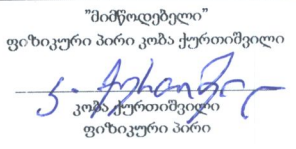 "მიმწოდებელი"
ფიზიკური პირი კობა ქურთიშვილი
კობა ქურთიშვილი
ფიზიკური პირი